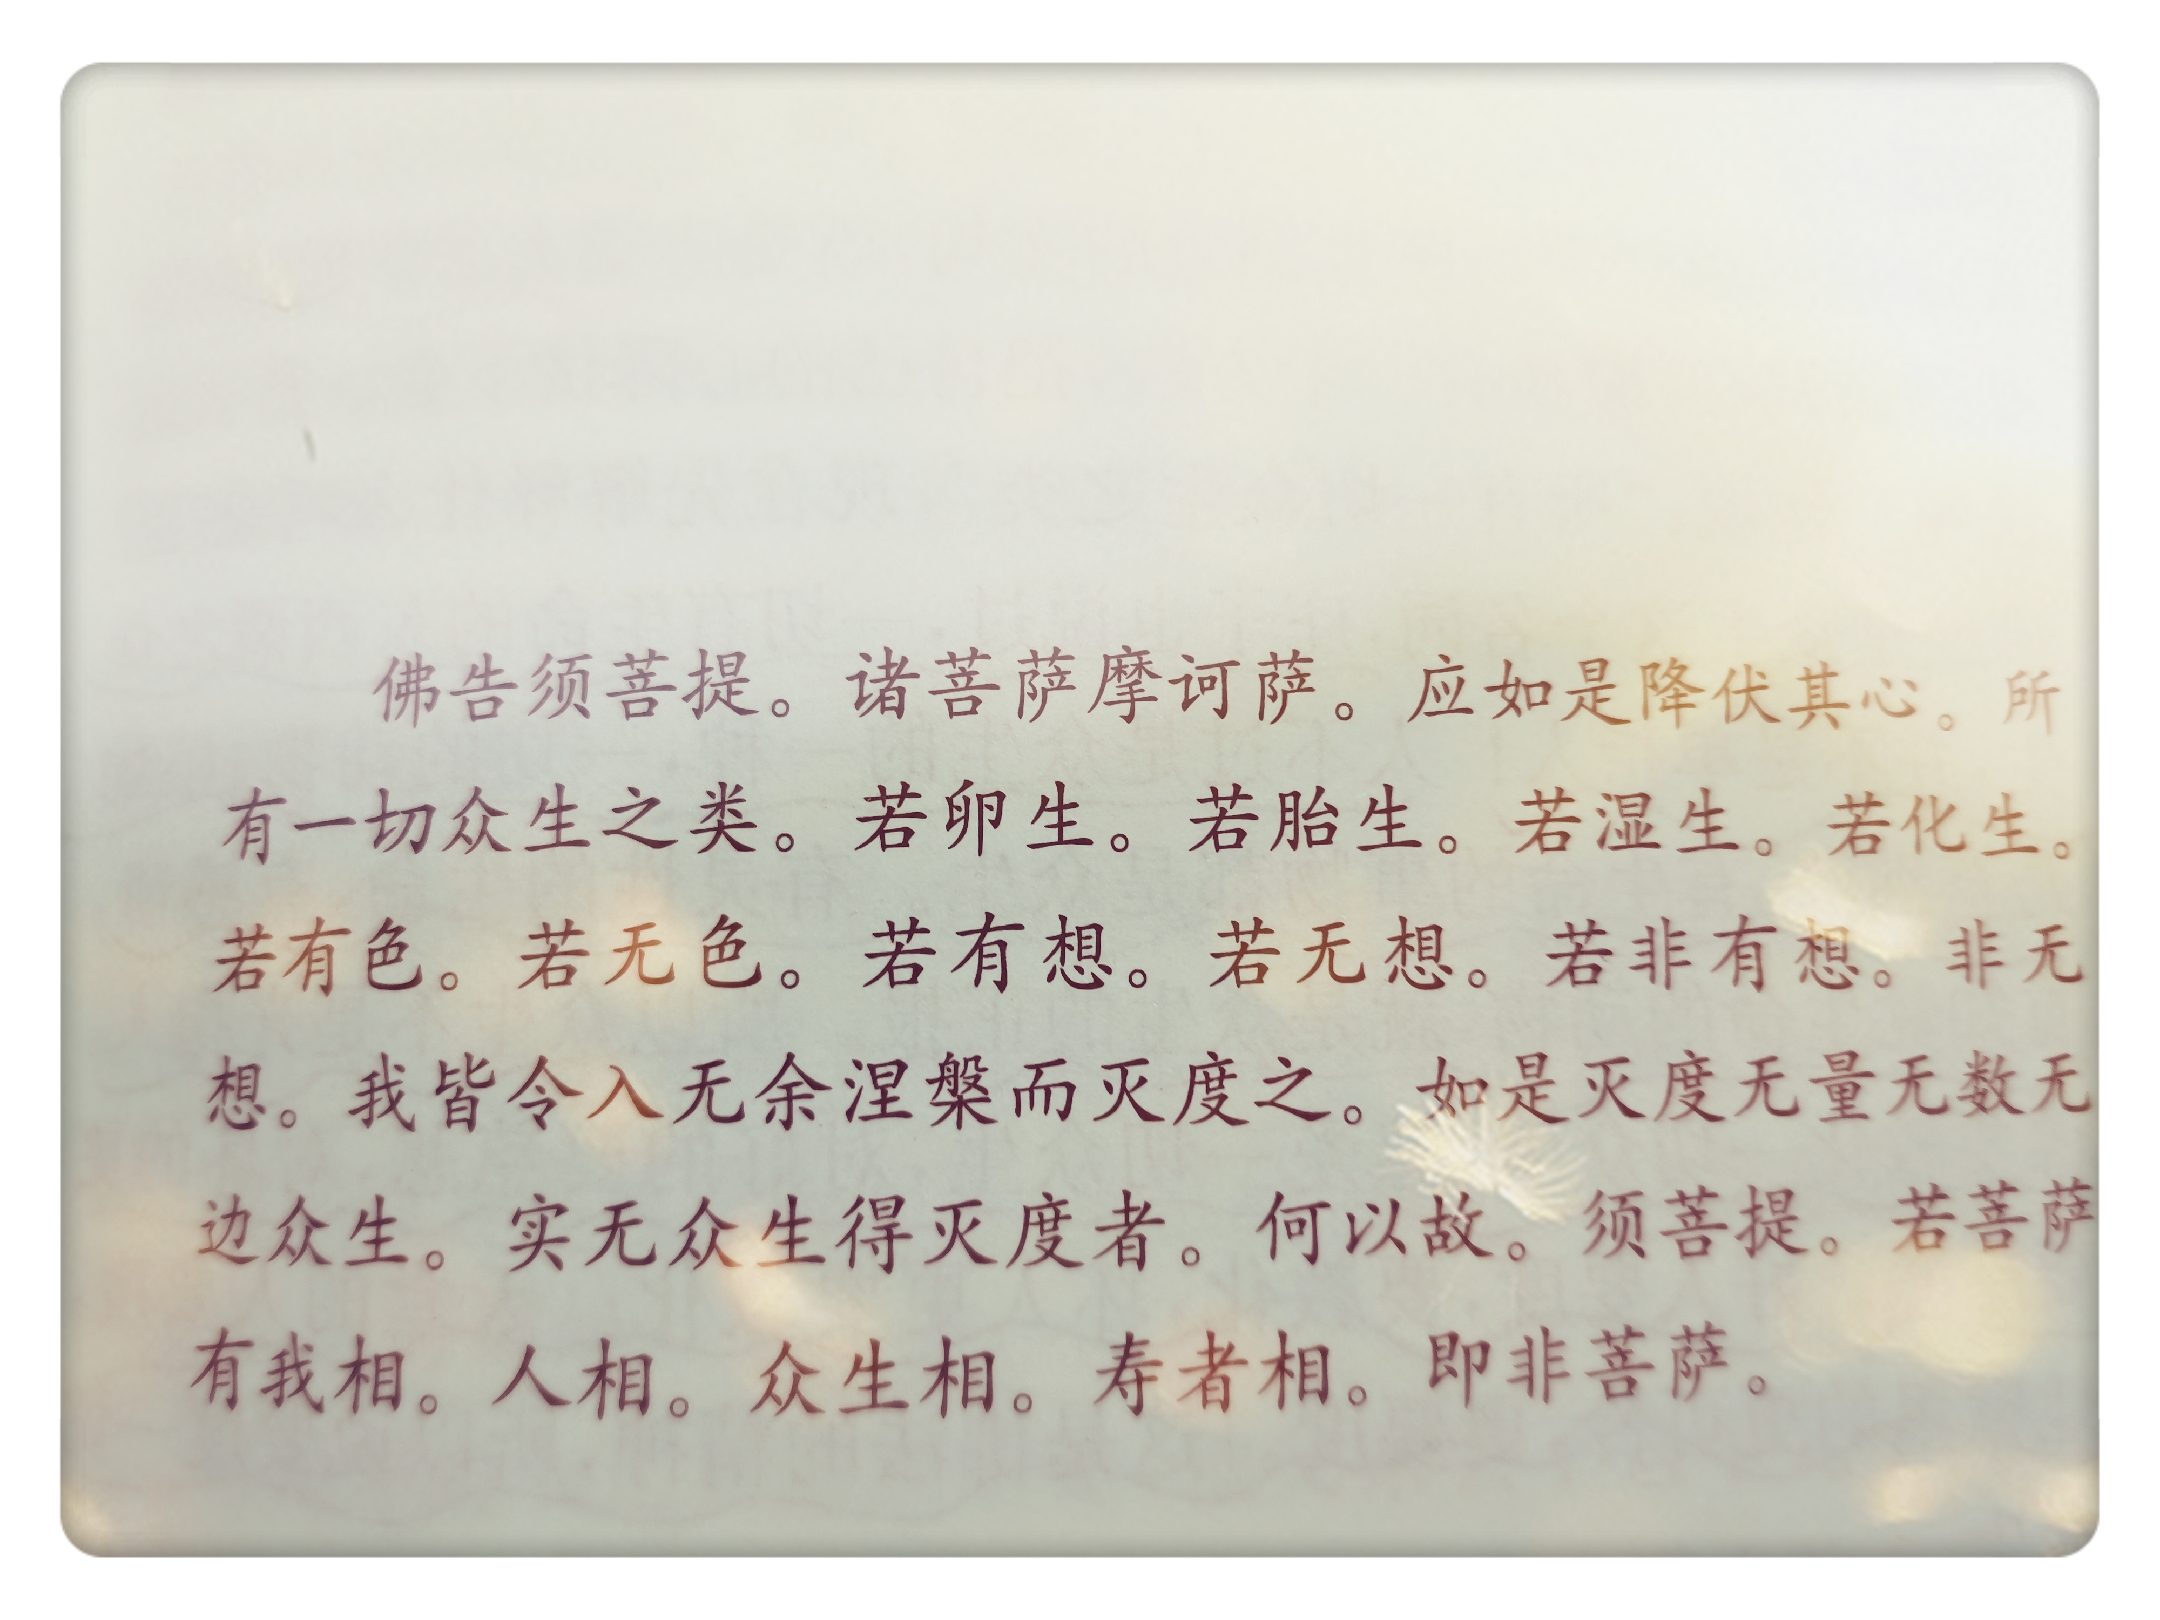 佛告须菩提。诸菩萨摩诃萨。应如是降伏其心。所
有一切众生之类。若卵生。若胎生。若湿生。若化生。
若有色。若无色。若有想。若无想。若非有想。非无
想。我皆令入无余涅槃而灭度之。如是灭度无量无数无
边众生。实无众生得灭度者。何以故。须菩提。若菩萨
有我相。人相。众生相。寿者相。即非菩萨。